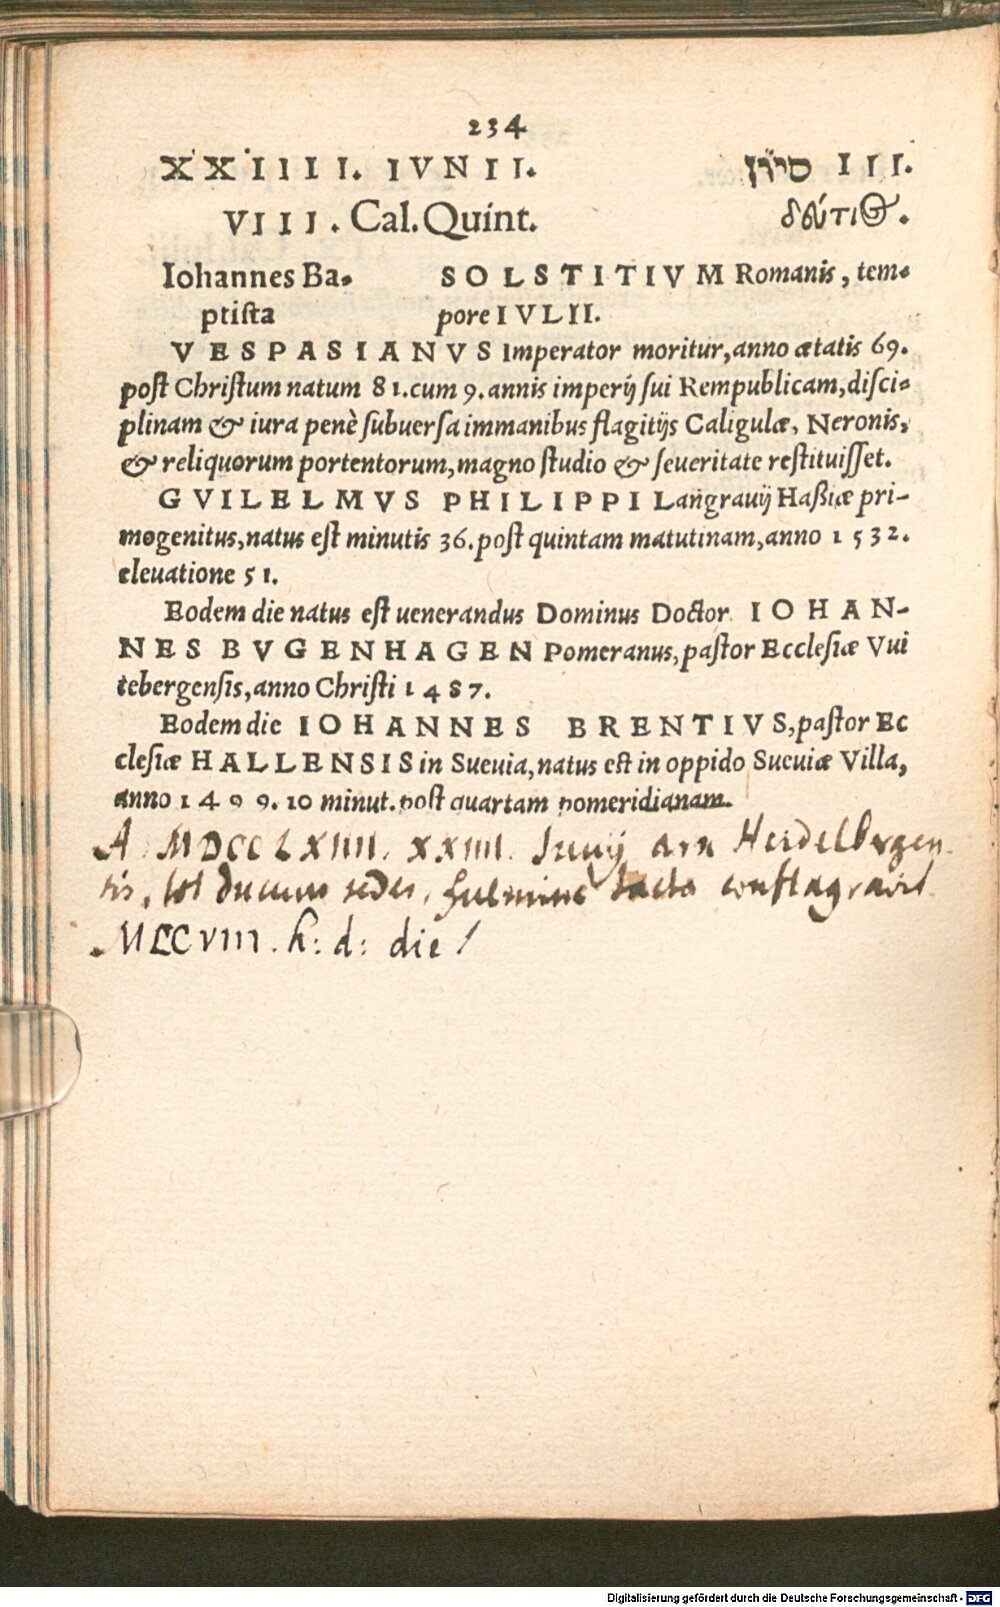 234
XXIIII. IVNII. סיון III.
VIII. Cal. Quint. δούτιος.
Iohannes Ba- SOLSTITIVM Romanis, tem-
ptista pore IVLII.
VESPASIANVS Imperator moritur, anno ætatis 69.
post Christum natum 81. cum 9. annis imperij sui Rempublicam, disci-
plinam & iura penè subuersa immanibus flagitijs Caligulæ, Neronis,
& reliquorum portentorum, magno studio & seueritate restituisset.
GVILELMVS PHILIPPI Langrauij Haßiæ pri-
mogenitus, natus est minutis 36. post quintam matutinam, anno 1532.
eleuatione 51.
Eodem die natus est uenerandus Dominus Doctor IOHAN-
NES BVGENHAGEN Pomeranus, pastor Ecclesiæ Vui
tebergensis, anno Christi 1487.
Eodem die IOHANNES BRENTIVS, pastor Ec
clesiæ HALLENSIS in Sueuia, natus est in oppido Sueuiæ Villa,
anno 1499. 10 minut. post quartam pomeridianam.
A. MDCCLXIIII. XXIIII. Junij arx Heidelbergen-
sis, tot ducum sedes, fulmine tacta conflagravit
MCCVIII. h: d: die /
Digitalisierung gefördert durch die Deutsche Forschungsgemeinschaft - DFG